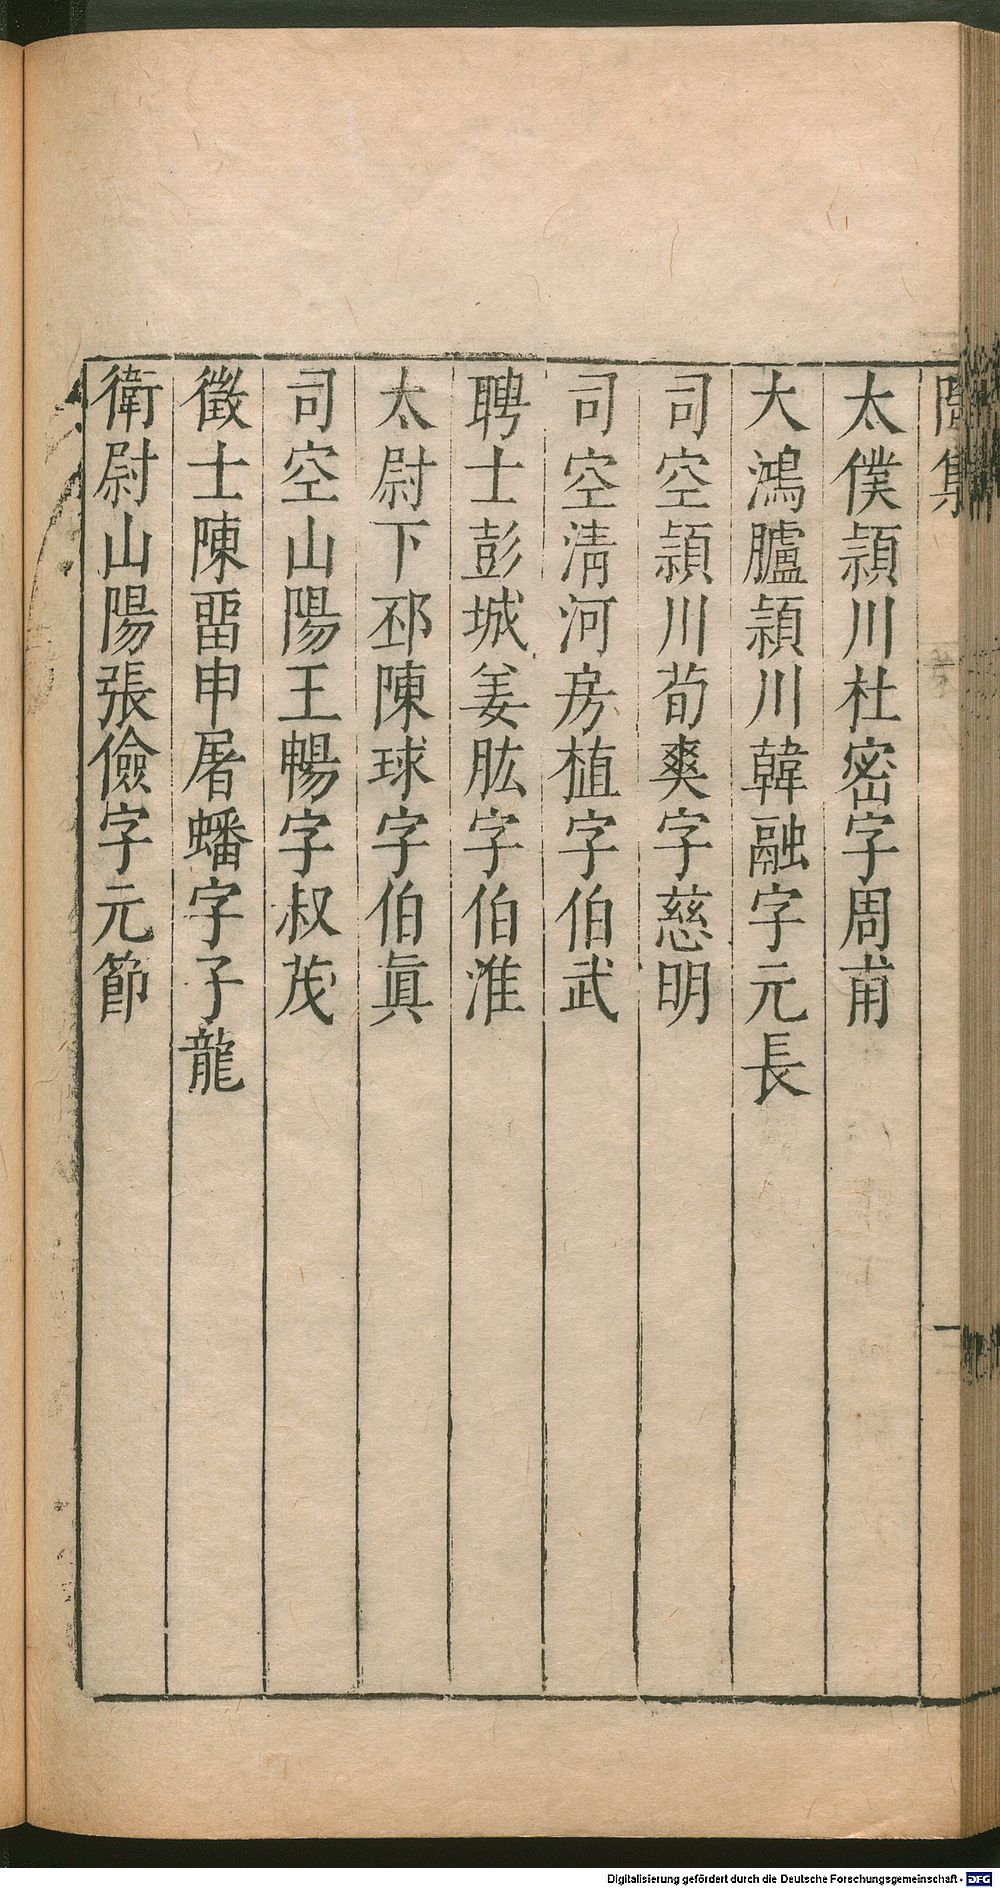 太僕潁川杜密字周甫
大鴻臚潁川韓融字元長
司空潁川荀爽字慈明
司空淸河房植字伯武
聘士彭城姜肱字伯淮
太尉下邳陳球字伯眞
司空山陽王暢字叔茂
徵士陳畱申屠蟠字子龍
衛尉山陽張儉字元節
Digitalisierung gefördert durch die Deutsche Forschungsgemeinschaft - DFG